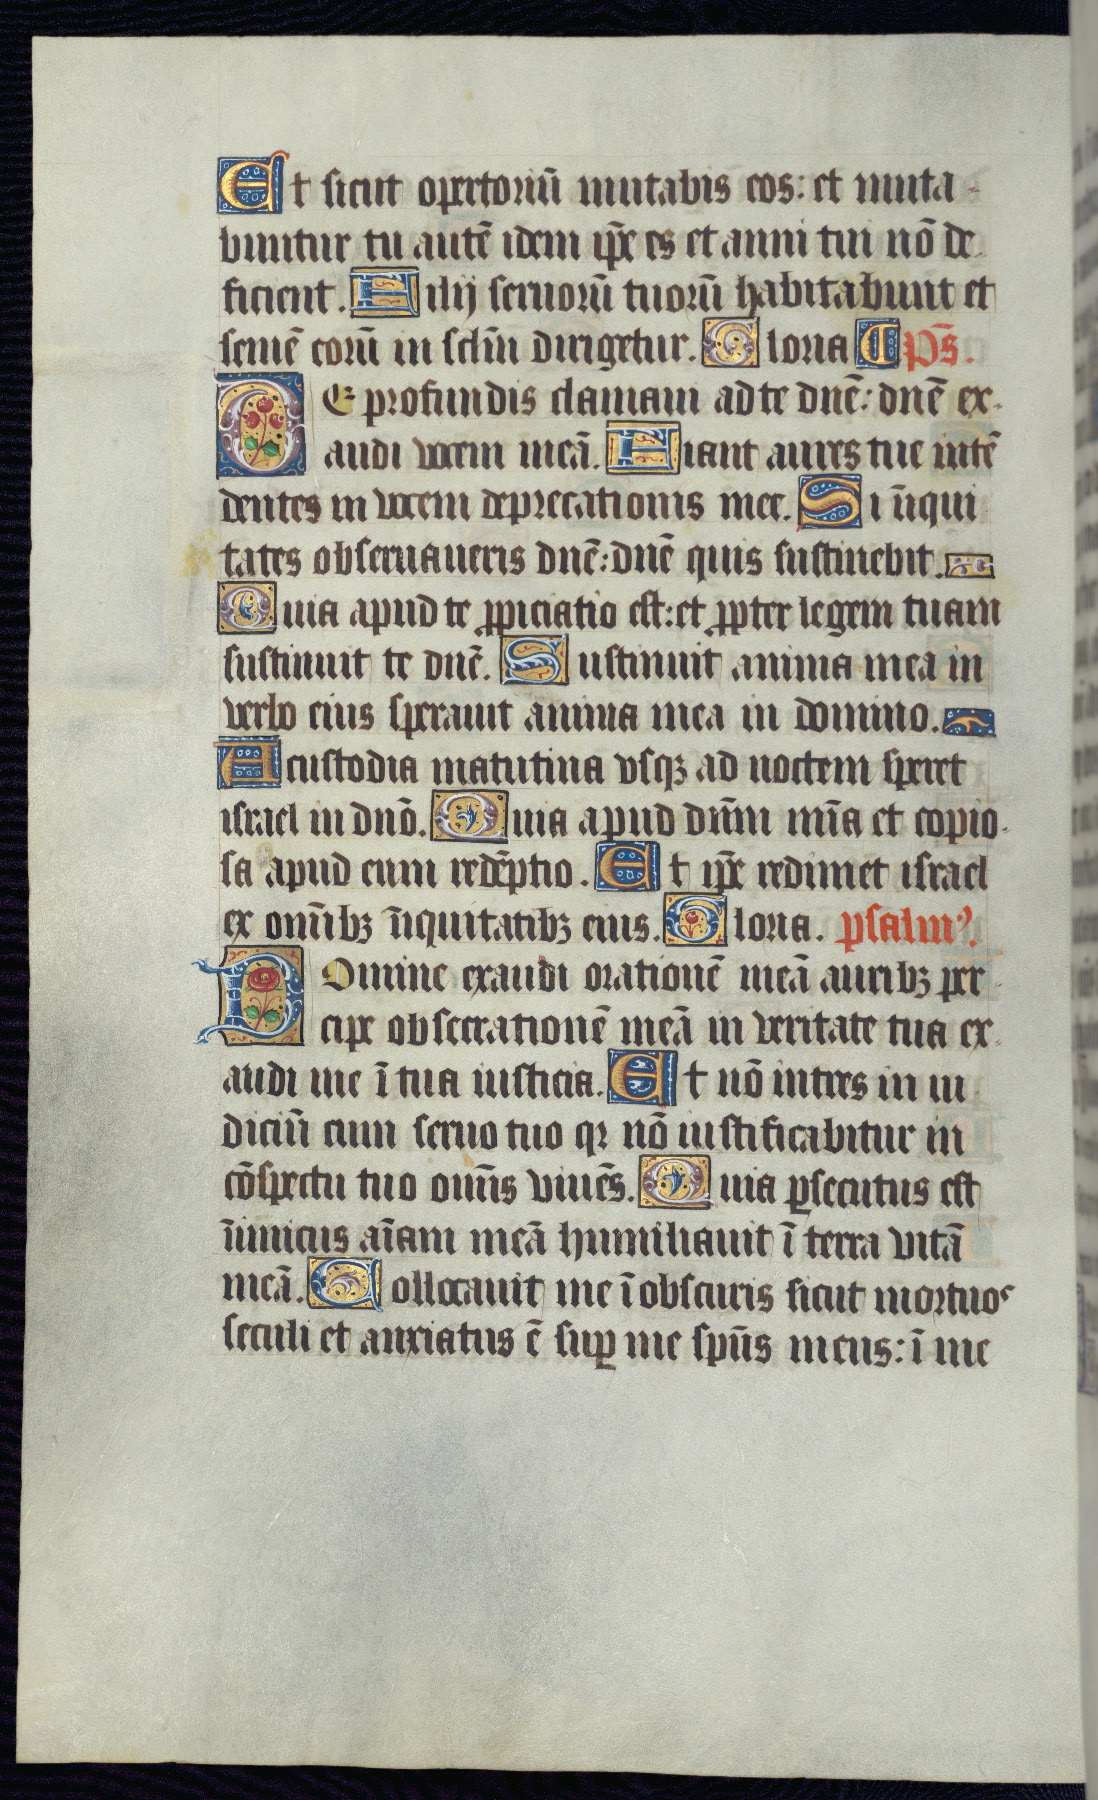 Et sicut optoriū mutabis eos: et muta-
buntur tu autē idem ip̄e es et anni tui nō de-
ficient. Filij seruorū tuorū habitabunt et
semē eorū in sclm̄ dirigetur. Gloria p̄s.
De profundis clamaui ad te dnē: dnē ex-
audi vocem meā. Fiant aures tue intē
dentes in vocem deprecationis mee. Si īiqui
tates obseruaueris dnē: dnē quis sustinebit.
Quia apud te ꝓpiciatio est: et ꝓpter legem tuam
sustinuit te dnē. Sustinuit anima mea in
verbo eius sperauit anima mea in domino.
A custodia matutina vsqꝫ ad noctem speret
israel in dnō. Quia apud dn̄m mīa et copio-
sa apud eum redēptio. Et ip̄e redimet israel
ex omībꝫ īiquitatibꝫ eius. Gloria. psalmꝰ.
Domine exaudi orationē meā auribꝫ per-
cipe obsecrationē meā in veritate tua ex-
audi me ī tua iusticia. Et nō intres in iu
diciū cum seruo tuo qꝛ nō iustificabitur in
cōspectu tuo omīs viuēs. Quia ꝑsecutus est
īimicus aīam meā humiliauit ī terra vitā
meā. Collocauit me ī obscuris sicut mortuos
seculi et anxiatus ē suꝑ me spūs meus: ī me